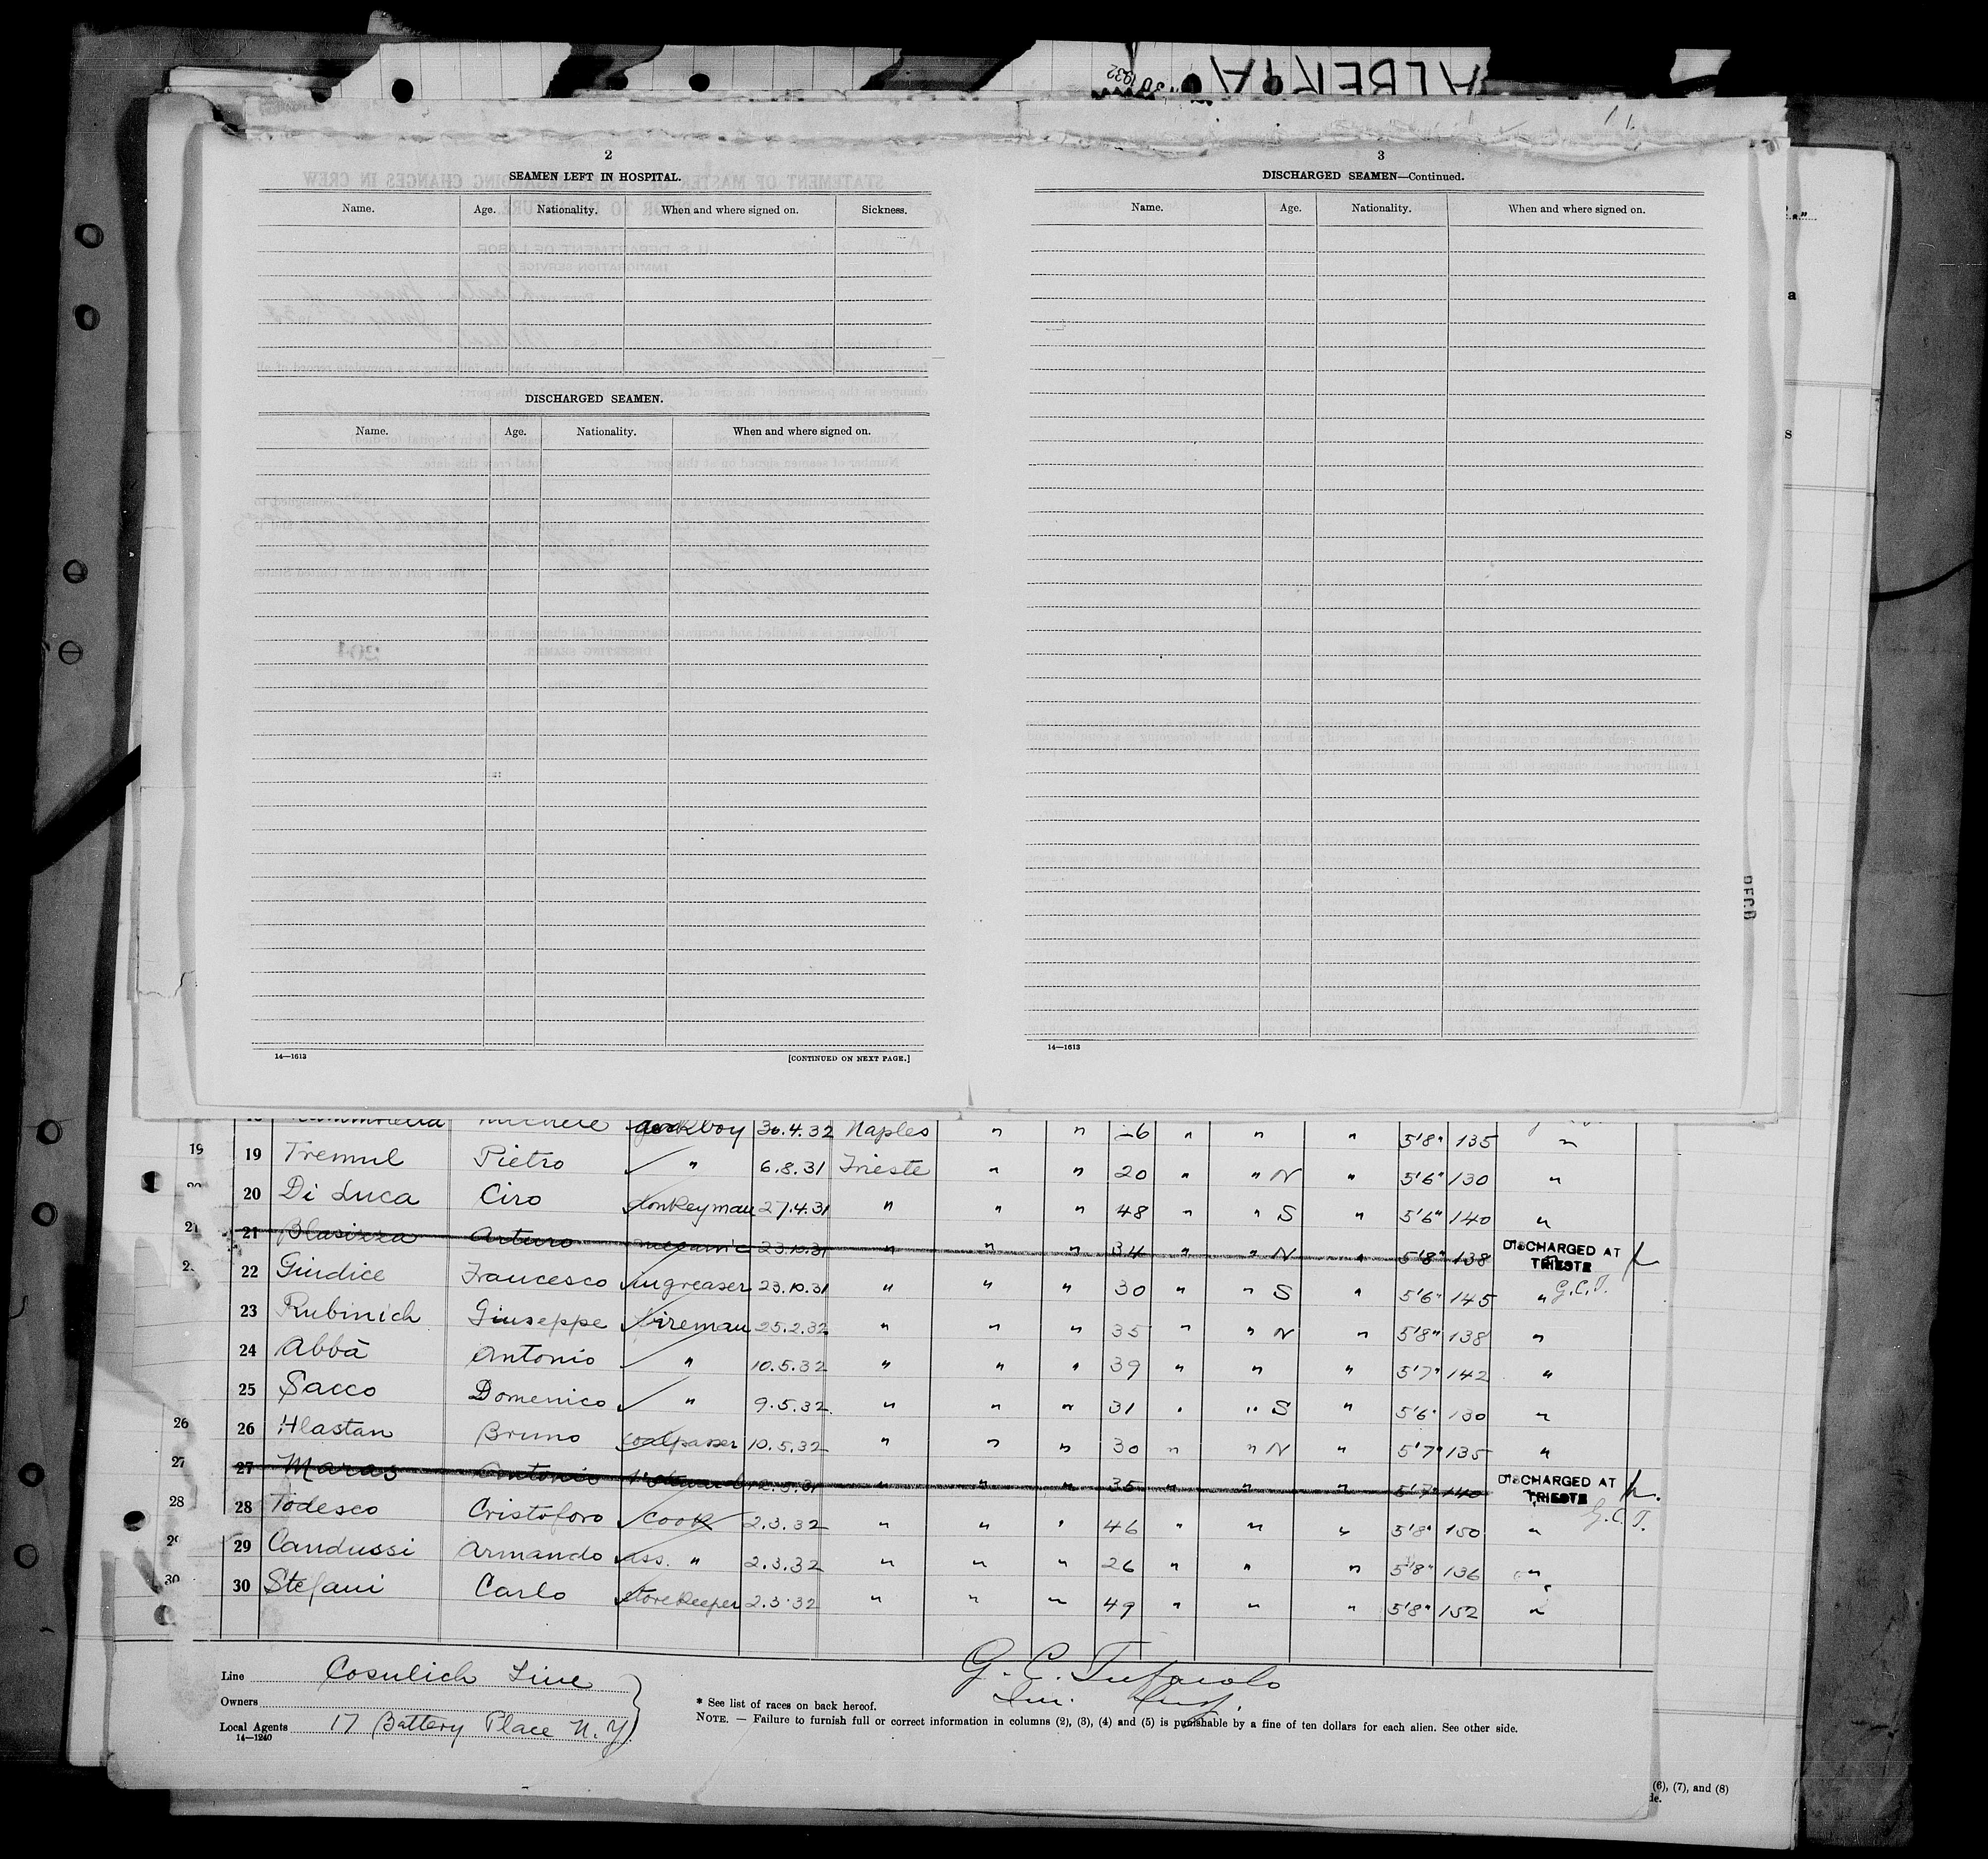 ALBERTA
1932
2
SEAMEN LEFT IN HOSPITAL.
Name. Age. Nationality. When and where signed on. Sickness.
DISCHARGED SEAMEN.
Name. Age. Nationality. When and where signed on.
14—1613 [CONTINUED ON NEXT PAGE.]
3
DISCHARGED SEAMEN—Continued.
Name. Age. Nationality. When and where signed on.
14—1613
RECD
a
s
Michele deckboy 30.4.32 Naples " " 26 " " " 5'8" 135 "
19 19 Tremul Pietro " 6.8.31 Trieste " " 20 " " N " 5'6" 130 "
20 20 Di Luca Ciro donkeyman 27.4.31 " " " 48 " " S " 5'6" 140 "
21 21 Blasizza Arturo mecanic 23.10.31 " " " 34 " " N " 5'8" 138 DISCHARGED AT TRIESTE
22 Giudice Francesco ingreaser 23.10.31 " " " 30 " " S " 5'6" 145 " G.C.T.
23 Rubinich Giuseppe fireman 25.2.32 " " " 35 " " N " 5'8" 138 "
24 Abbà Antonio " 10.5.32 " " " 39 " " " 5'7" 142 "
25 Sacco Domenico " 9.5.32 " " " 31 " " S " 5'6" 130 "
26 26 Hlastan Bruno coalpasser 10.5.32 " " " 30 " " N " 5'7" 135 "
27 27 Maras Antonio " " " 35 " " " 5'7" 140 DISCHARGED AT TRIESTE
28 28 Todesco Cristoforo cook 2.3.32 " " " 46 " " " 5'8" 150 " G.C.T.
29 29 Candussi Armando ass. " 2.3.32 " " " 26 " " " 5'8" 136 "
30 30 Stefani Carlo storekeeper 2.3.32 " " " 49 " " " 5'8" 152 "
Line Cosulich Line
Owners
Local Agents 17 Battery Place N.Y.
14—1240
G. C. Tufarolo
Im. Insp.
* See list of races on back hereof.
NOTE. — Failure to furnish full or correct information in columns (2), (3), (4) and (5) is punishable by a fine of ten dollars for each alien. See other side.
(6), (7), and (8)
de.